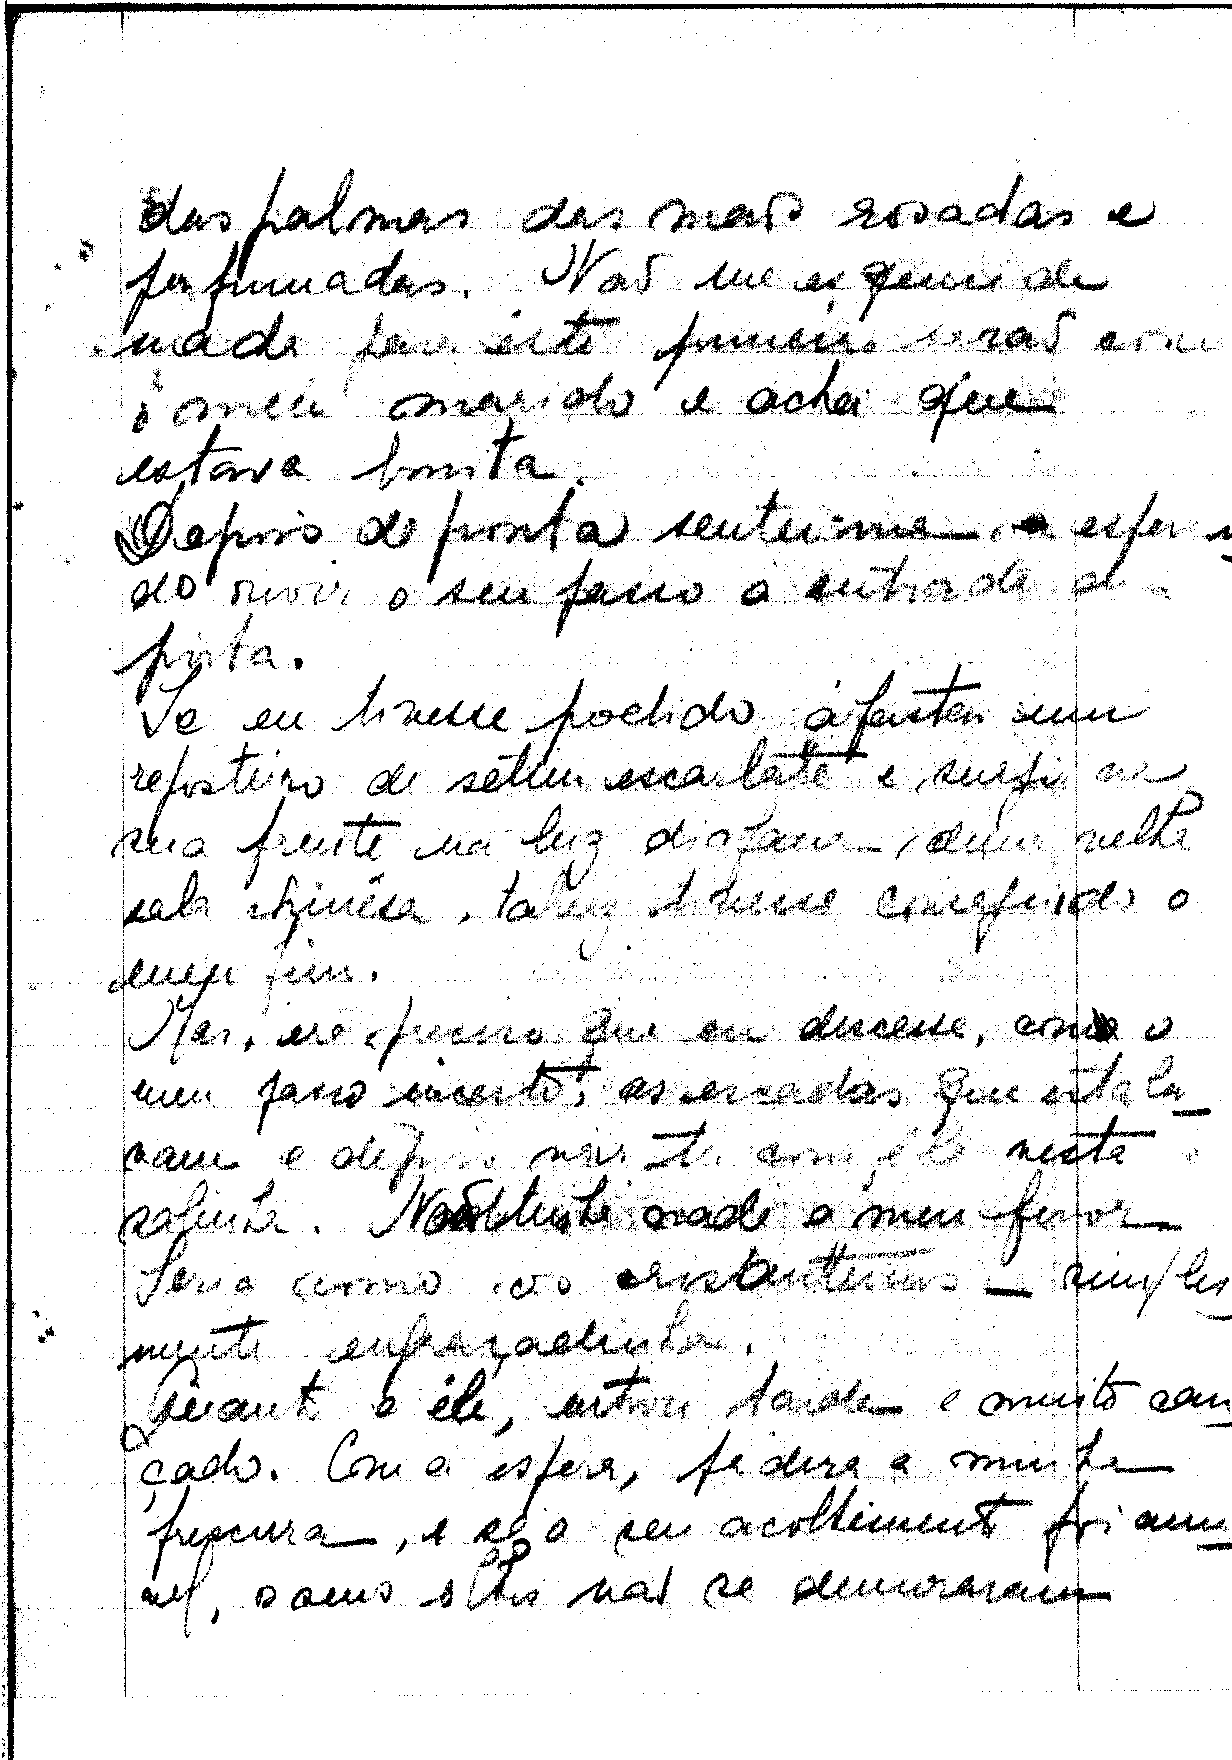 das palmas das mãos rosadas e
perfumadas. Não me esqueci de
nada para êste primeiro serão com
o meu marido e achei que
estava bonita.
Depois de pronta sentei-me a esperan
do ouvir o seu passo à entrada da
porta.
Se eu tivesse podido afastar um
reposteiro de setim escarlate e surgir na
sua frente na luz diáfana duma velha
sala chinêsa, talvez tivesse conseguido o
meu fim.
Mas, era preciso que eu descesse, com o
meu passo incerto, as escadas que estala_
vam e depois vir ter com êle nesta
salinha. Não tinha nada a meu favor.
Seria como os cristantemos _ simples_
mente engraçadinha.
Quanto a êle, entrou tarde e muito can_
çado. Com a espera, perdera a minha
frescura, e se o seu acolhimento foi amá_
vel, os seus olhos não se demoraram